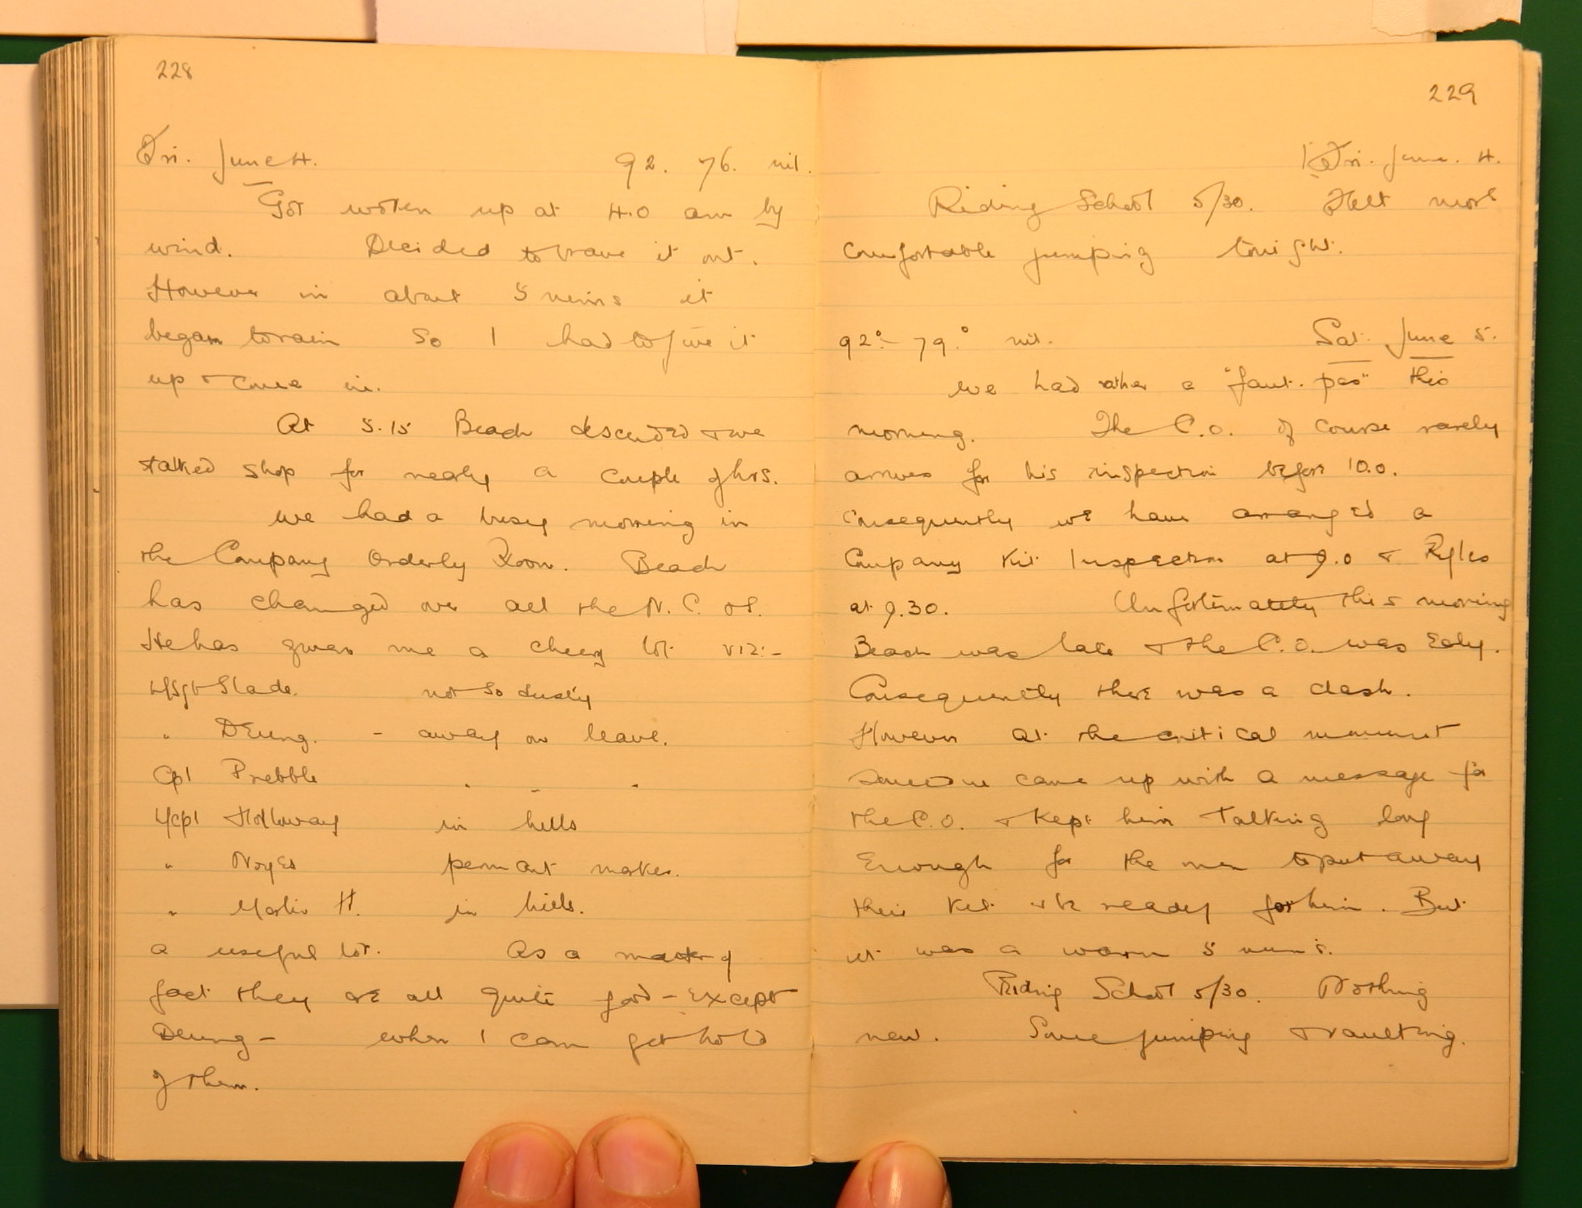 228
Fri. June 4. 92. 76. nil.
Got woken up at 4.0 am by
wind. Decided to brave it out.
However in about 5 mins it
began to rain so I had to give it
up & come in.
At 5.15 Beach descended & we
talked shop for nearly a couple of hrs.
We had a busy morning in
the Company Orderly Room. Beach
has changed over all the N.C.O's.
He has given me a cheery lot viz:-
L/Sgt Slade. not so dusty
" Deung. - away on leave.
Cpl Prebble " " "
L/Cpl Holloway in hills
" Noyes permant maker.
" Martin H. in hills.
a useful lot. As a matter of
fact they are all quite good - except
Deung - when I can get hold
of them.
229
Fri. June. 4.
Riding School 5/30. Felt more
comfortable jumping tonight.
92°- 79.° nil. Sat. June 5.
We had rather a "faut. pas" this
morning. The C.O. of course rarely
arrives for his inspection before 10.0.
Consequently we have arranged a
Company Kit Inspection at 9.0 & Rifles
at 9.30. Unfortunately this morning
Beach was late & the C.O. was early.
Consequently there was a clash.
However at the critical moment
someone came up with a message for
the C.O. & kept him talking long
enough for the men to put away
their kit & be ready for him. But
it was a warm 5 mins.
Riding School 5/30. Nothing
new. Some jumping & vaulting.